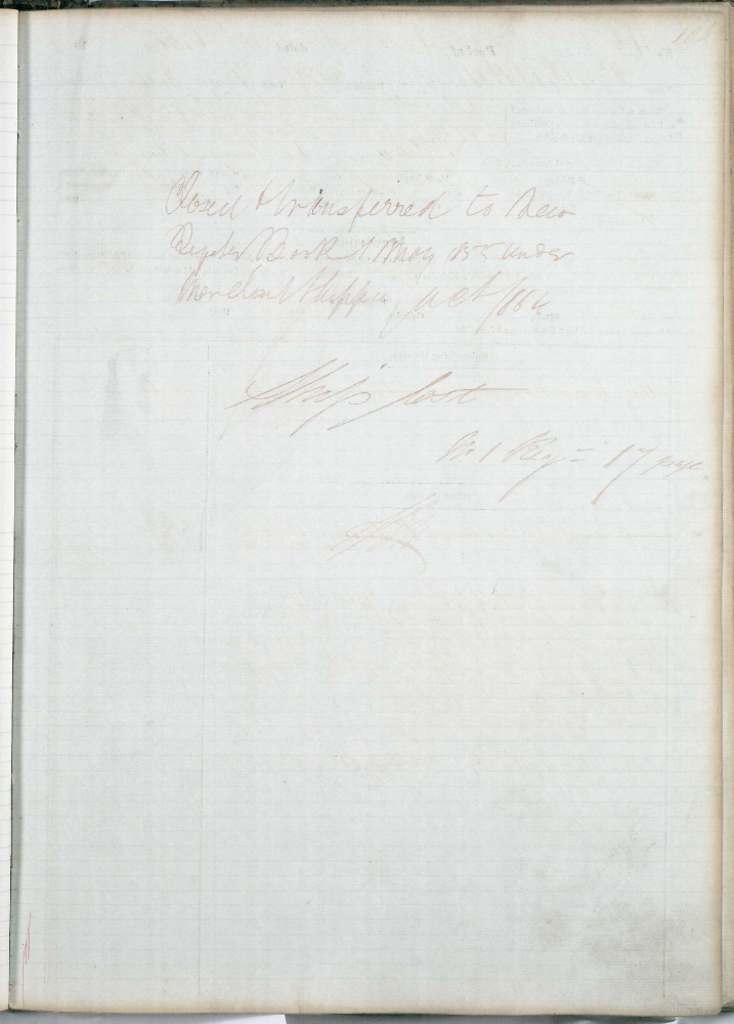 Closed & transferred to New
Register Book 1. May 1855 under
Merchant Shipping Act 1854
Ship lost
No 1 Reg = 17 page